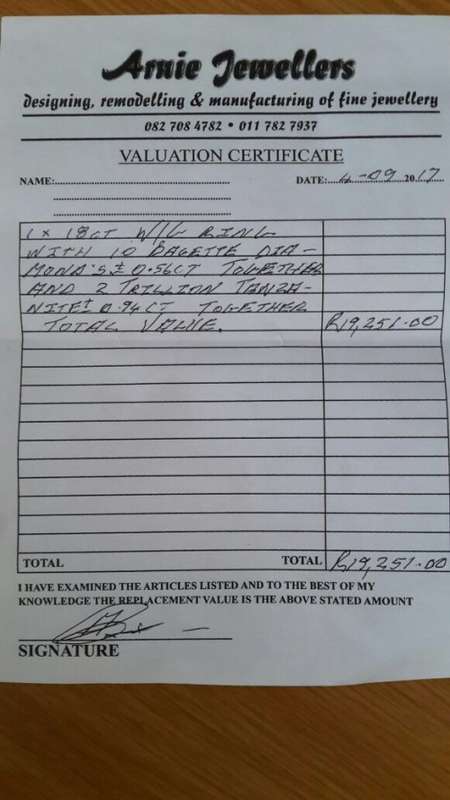 Arnie Jewellers
designing, remodelling & manufacturing of fine jewellery
082 708 4782 • 011 782 7937
VALUATION CERTIFICATE
NAME:
DATE: 4-09 2017
1 x 18CT W/G RING
WITH 10 BAGETTE DIA-
MOND'S ± 0.56CT TOGETHER
AND 2 TRILLION TANZA-
NITE ± 0.94CT TOGETHER
TOTAL VALUE. R19,251.00
TOTAL TOTAL R19,251.00
I HAVE EXAMINED THE ARTICLES LISTED AND TO THE BEST OF MY
KNOWLEDGE THE REPLACEMENT VALUE IS THE ABOVE STATED AMOUNT
SIGNATURE